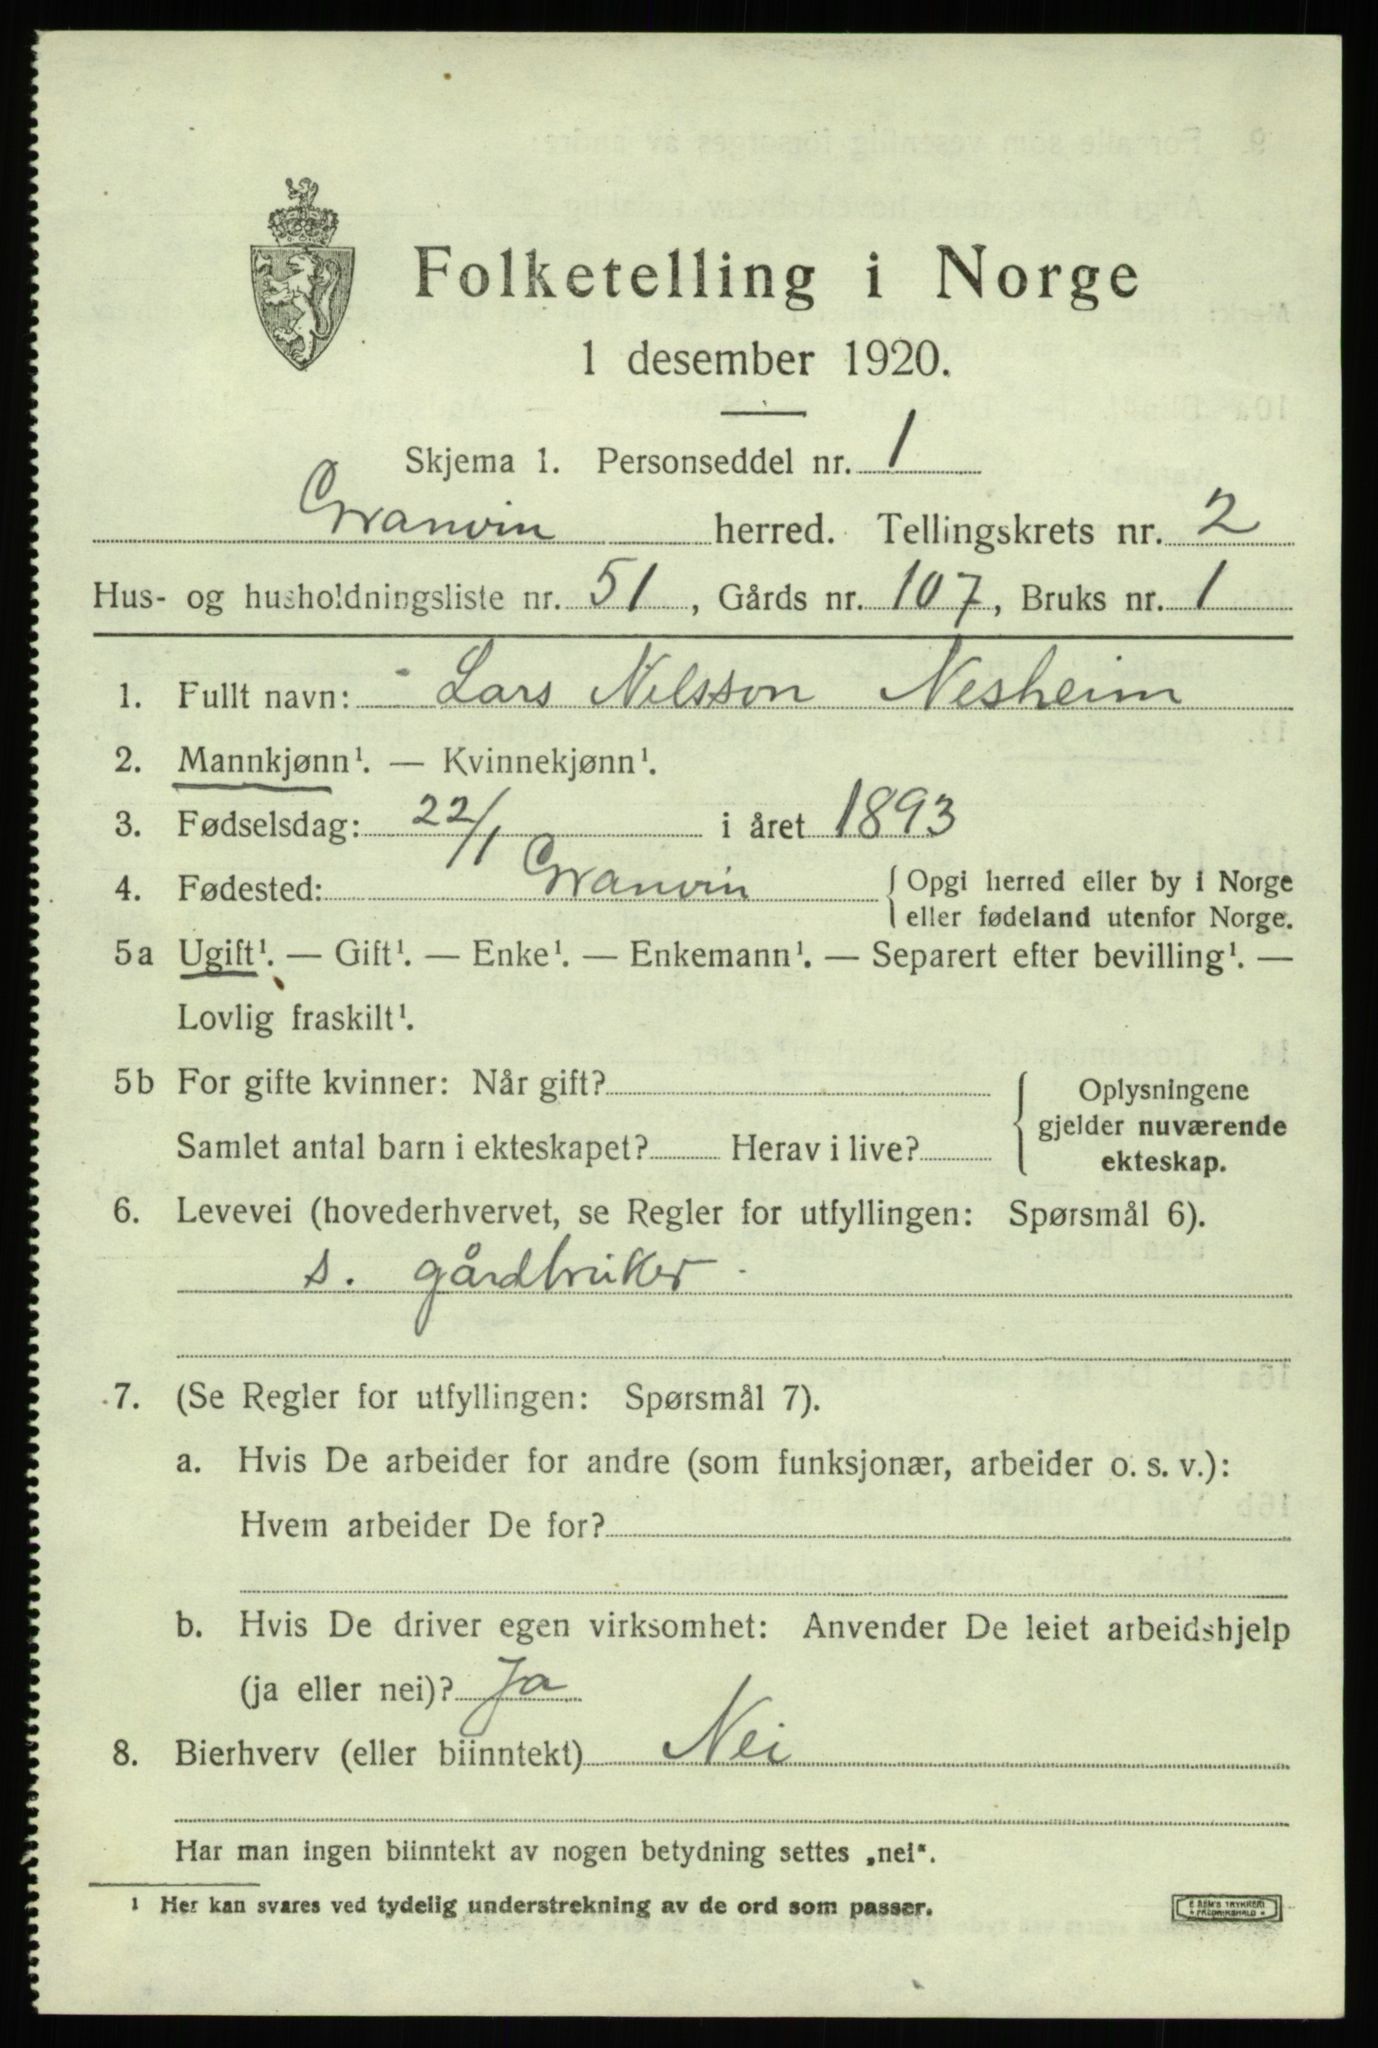 Folketelling i Norge
1 desember 1920.
Skjema 1. Personseddel nr. 1
Granvin herred. Tellingskrets nr. 2
Hus- og husholdningsliste nr. 51, Gårds nr. 107, Bruks nr. 1
1. Fullt navn: Lars Nilsson Nesheim
2. Mannkjønn¹. — Kvinnekjønn¹.
3. Fødselsdag: 22/1 i året 1893
4. Fødested: Granvin { Opgi herred eller by i Norge
eller fødeland utenfor Norge.
5a Ugift¹. — Gift¹. — Enke¹. — Enkemann¹. — Separert efter bevilling¹. —
Lovlig fraskilt¹.
5b For gifte kvinner: Når gift?
Samlet antal barn i ekteskapet? Herav i live?
{ Oplysningene
gjelder nuværende
ekteskap.
6. Levevei (hovederhvervet, se Regler for utfyllingen: Spørsmål 6).
s. gårdbruker
7. (Se Regler for utfyllingen: Spørsmål 7).
a. Hvis De arbeider for andre (som funksjonær, arbeider o. s. v.):
Hvem arbeider De for?
b. Hvis De driver egen virksomhet: Anvender De leiet arbeidshjelp
(ja eller nei)? Ja
8. Bierhverv (eller biinntekt) Nei
Har man ingen biinntekt av nogen betydning settes „nei“.
¹ Her kan svares ved tydelig understrekning av de ord som passer.